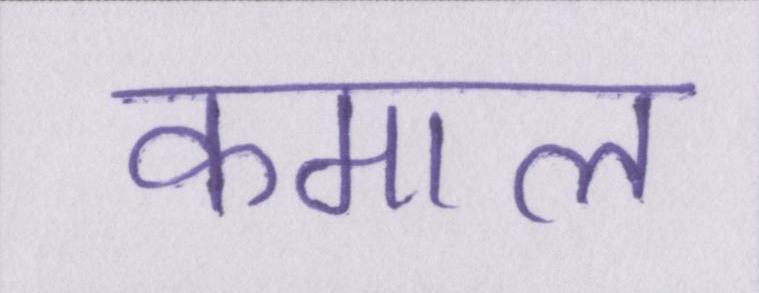 कमाल